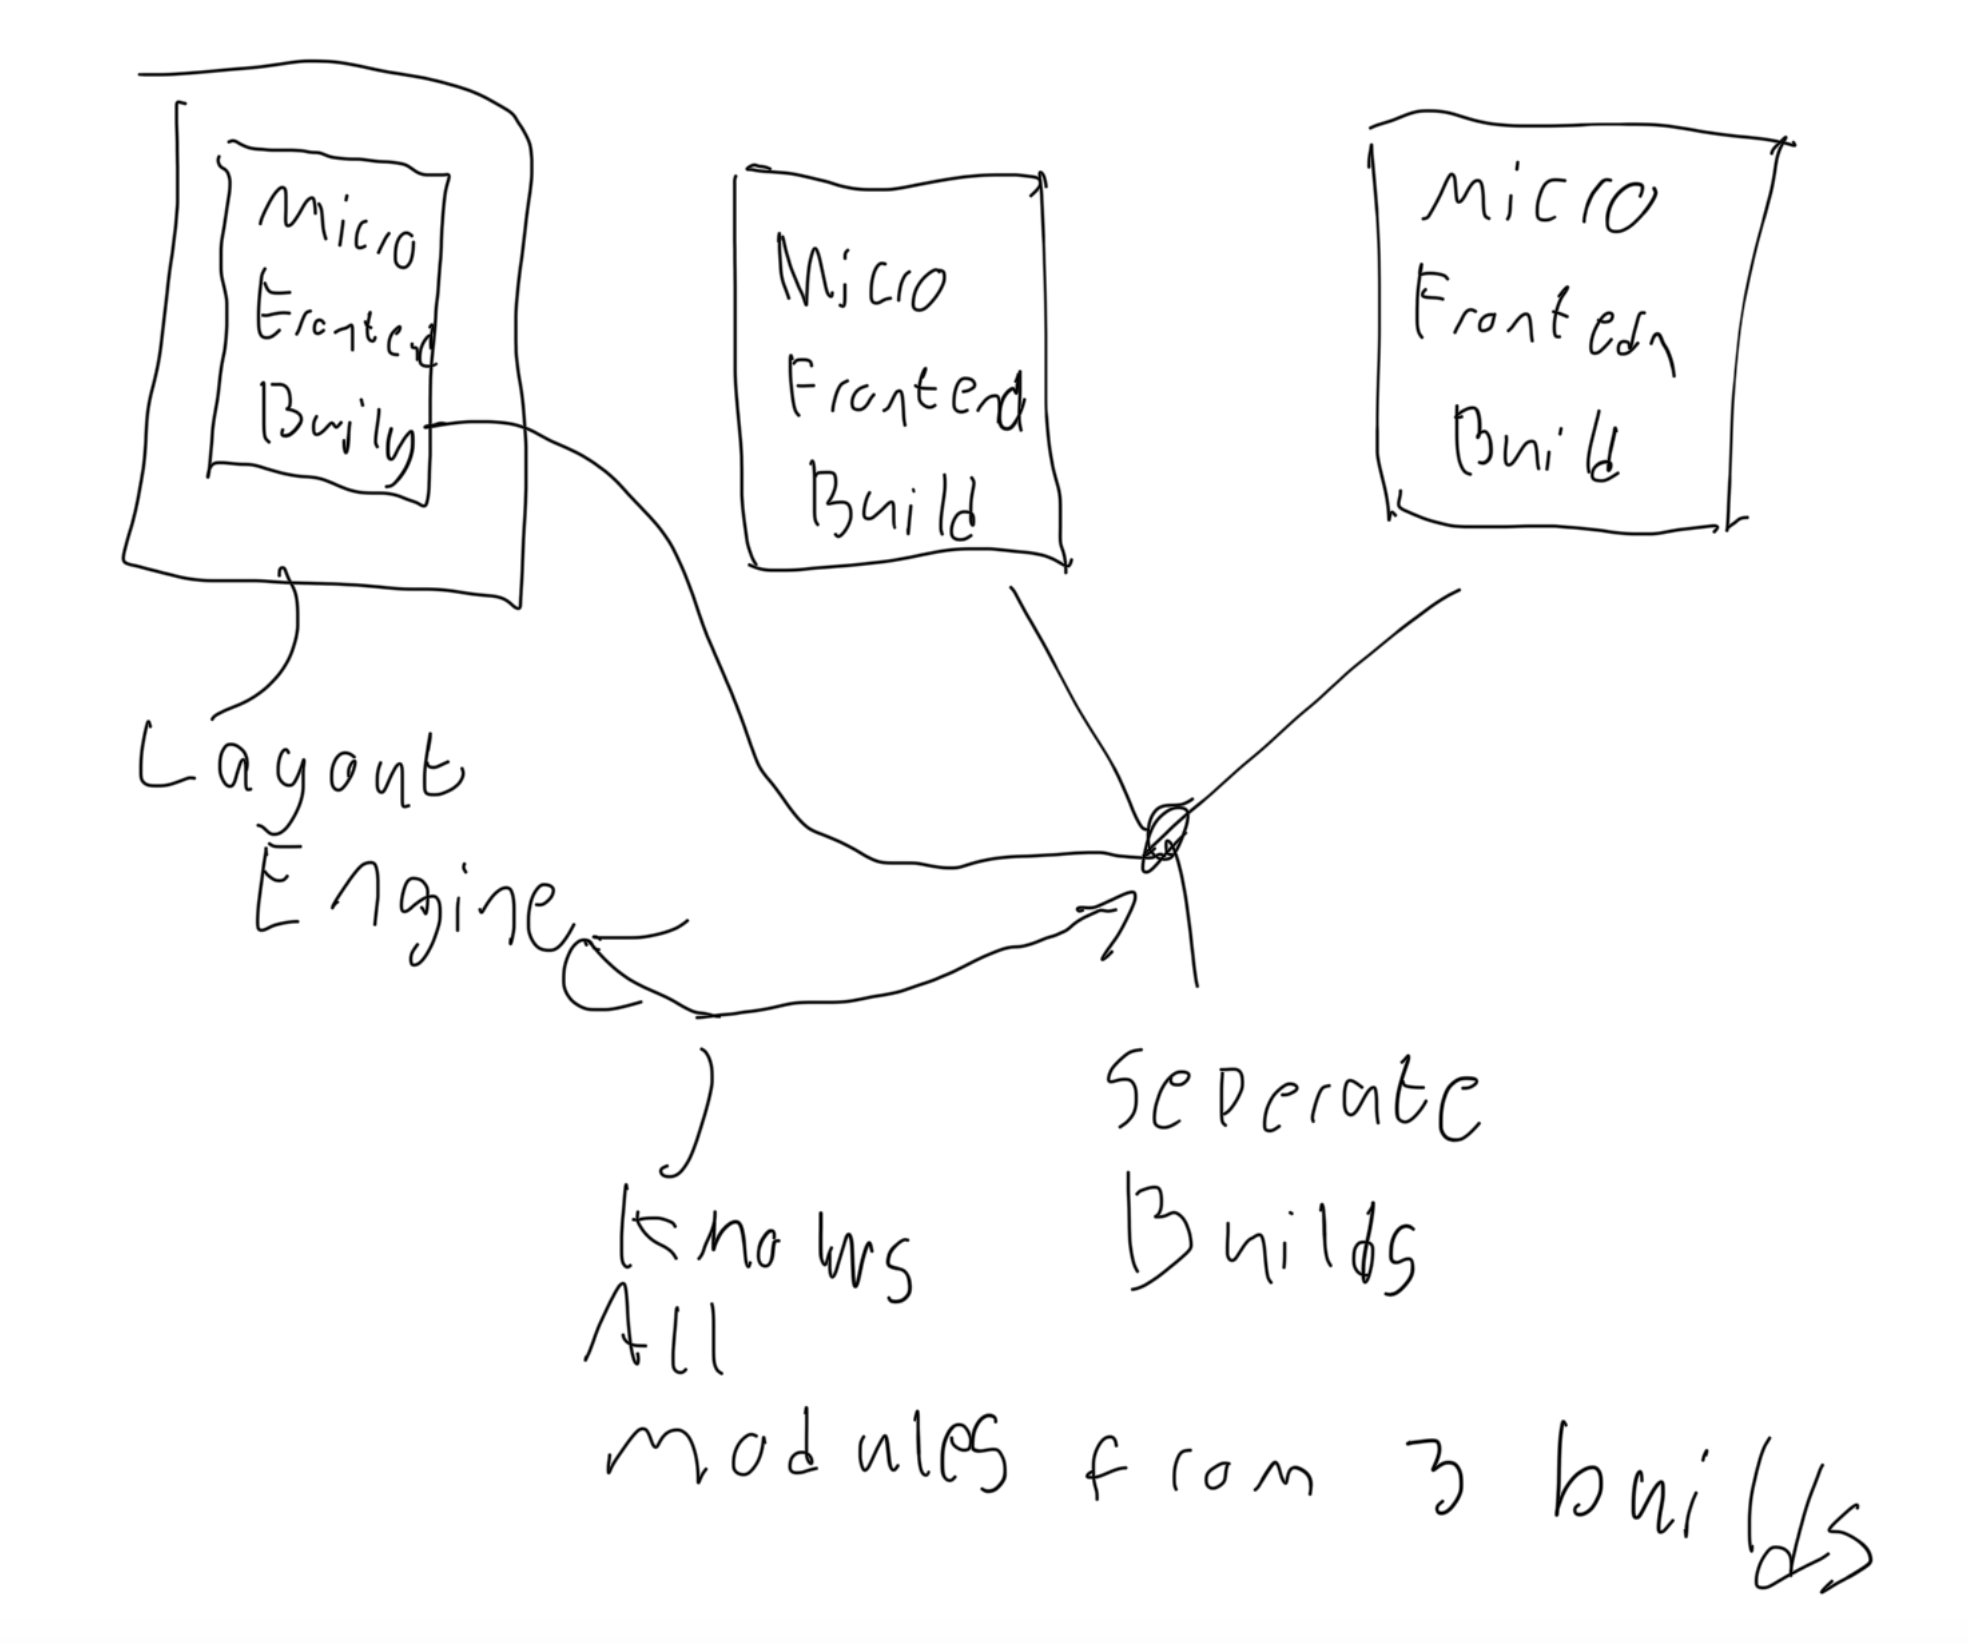 Micro
Frontend
Build
Micro
Frontend
Build
Micro
Frontedn
Build
Layout
Engine
Seperate
Builds
Knows
All
modules from 3 builds